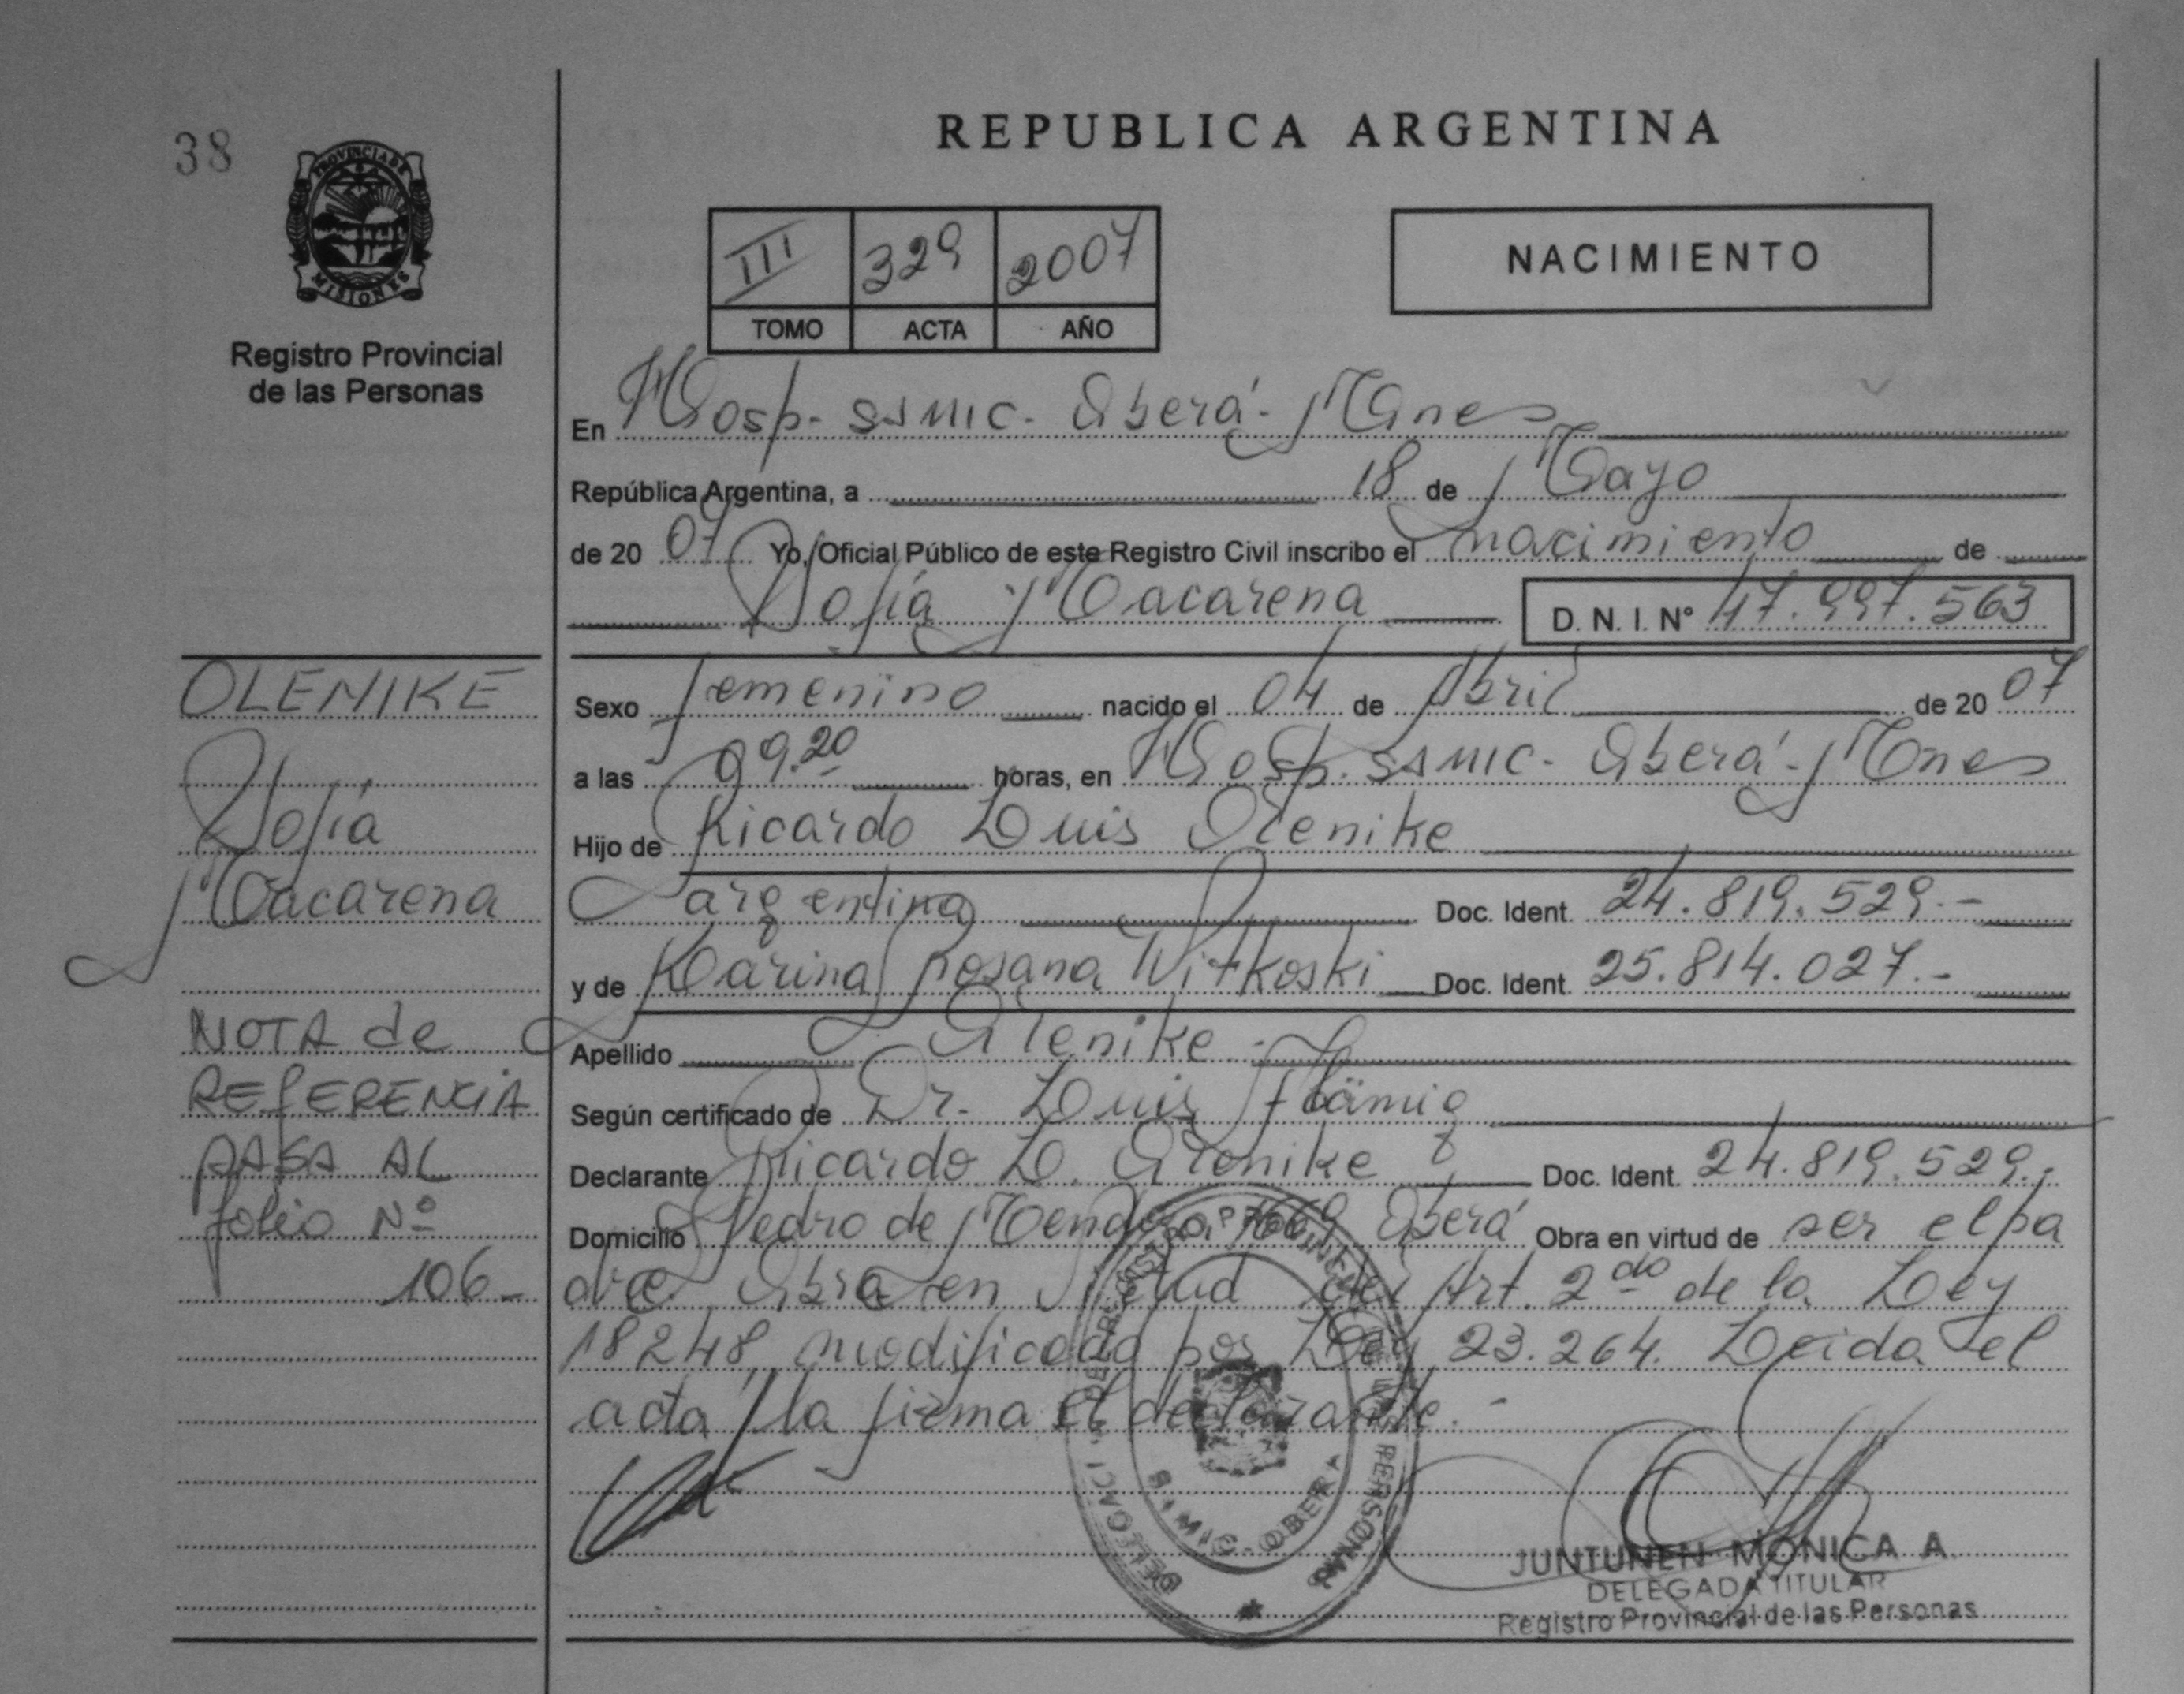 38
PROVINCIA DE
MISIONES
Registro Provincial
de las Personas
REPUBLICA ARGENTINA
III 329 2007
TOMO ACTA AÑO
NACIMIENTO
En Hosp. SSMIC. Oberá - Mnes
República Argentina, a 18 de Mayo
de 20 07 Yo, Oficial Público de este Registro Civil inscribo el nacimiento de
Sofía Macarena D. N. I. Nº 47.997.563
OLENIKE
Sofía
Macarena
NOTA de
REFERENCIA
PASA AL
folio Nº
106-
Sexo femenino nacido el 04 de Abril de 20 07
a las 09.20 horas, en Hosp. SSMIC - Oberá - Mnes
Hijo de Ricardo Luis Olenike
argentina Doc. Ident. 24.819.529.-
y de Karina Rosana Witkoski Doc. Ident. 25.814.027.-
Apellido Olenike.-
Según certificado de Dr. Luis Flämig
Declarante Ricardo L. Olenike Doc. Ident. 24.819.529.-
Domicilio Pedro de Mendoza Oberá Obra en virtud de ser el pa
dre Obra en Virtud del Art. 2do de la Ley
18248, modificada por Ley 23.264. Leida el
acta, la firma el declarante.-
DELEGACI REGISTRO PROVINCIAL DE LAS PERSONAS
S.MIC-OBERA
JUNTUNEN MONICA A
DELEGADA TITULAR
Registro Provincial de las Personas